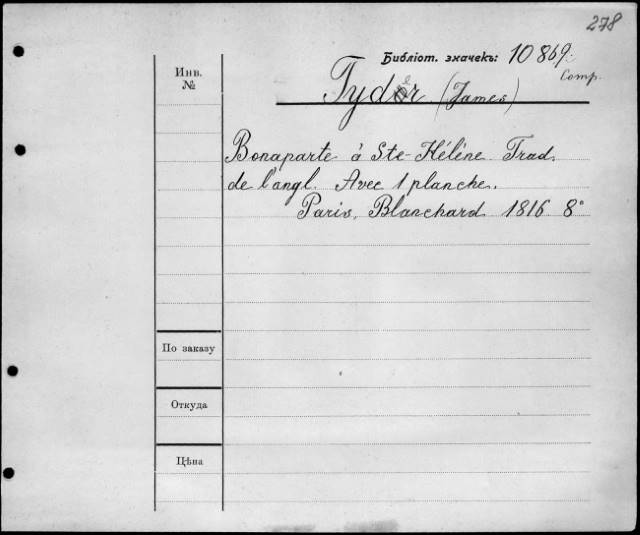 278
Библіот. значекъ: 10869.
Comp.
Инв.
№
Tyder (James)
Bonaparte à Ste-Hélène Trad.
de l'angl. Avec 1 planche.
Paris, Blanchard 1816 8°
По заказу
Откуда
Цѣна